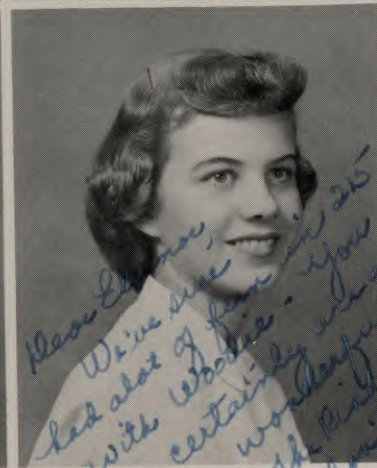 Dear Eleanor,
We've sure
had alot of fun in 215
with Woodie. You
certainly are a
wonderful
the